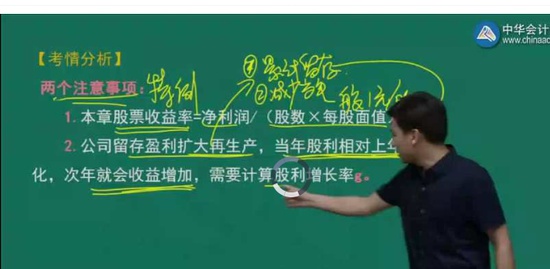 中华会计
www.chinaac
【考情分析】
两个注意事项：特例
①累计留存
②减
1. 本章股票收益率=净利润/（股数×每股面值
2. 公司留存盈利扩大再生产，当年股利相对上年
化，次年就会收益增加，需要计算股利增长率g。